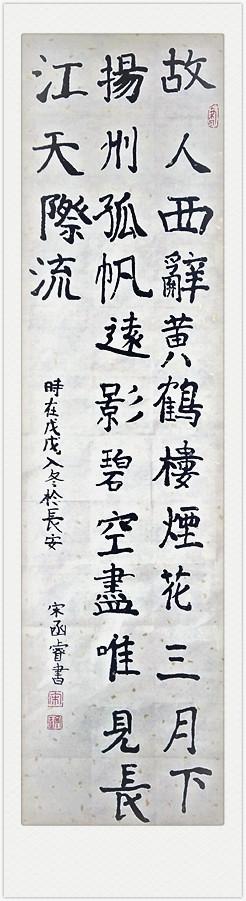 故人西辭黄鶴樓煙花三月下
揚州孤帆遠影碧空盡唯見長
江天際流
時在戊戌入冬於長安
宋函睿書